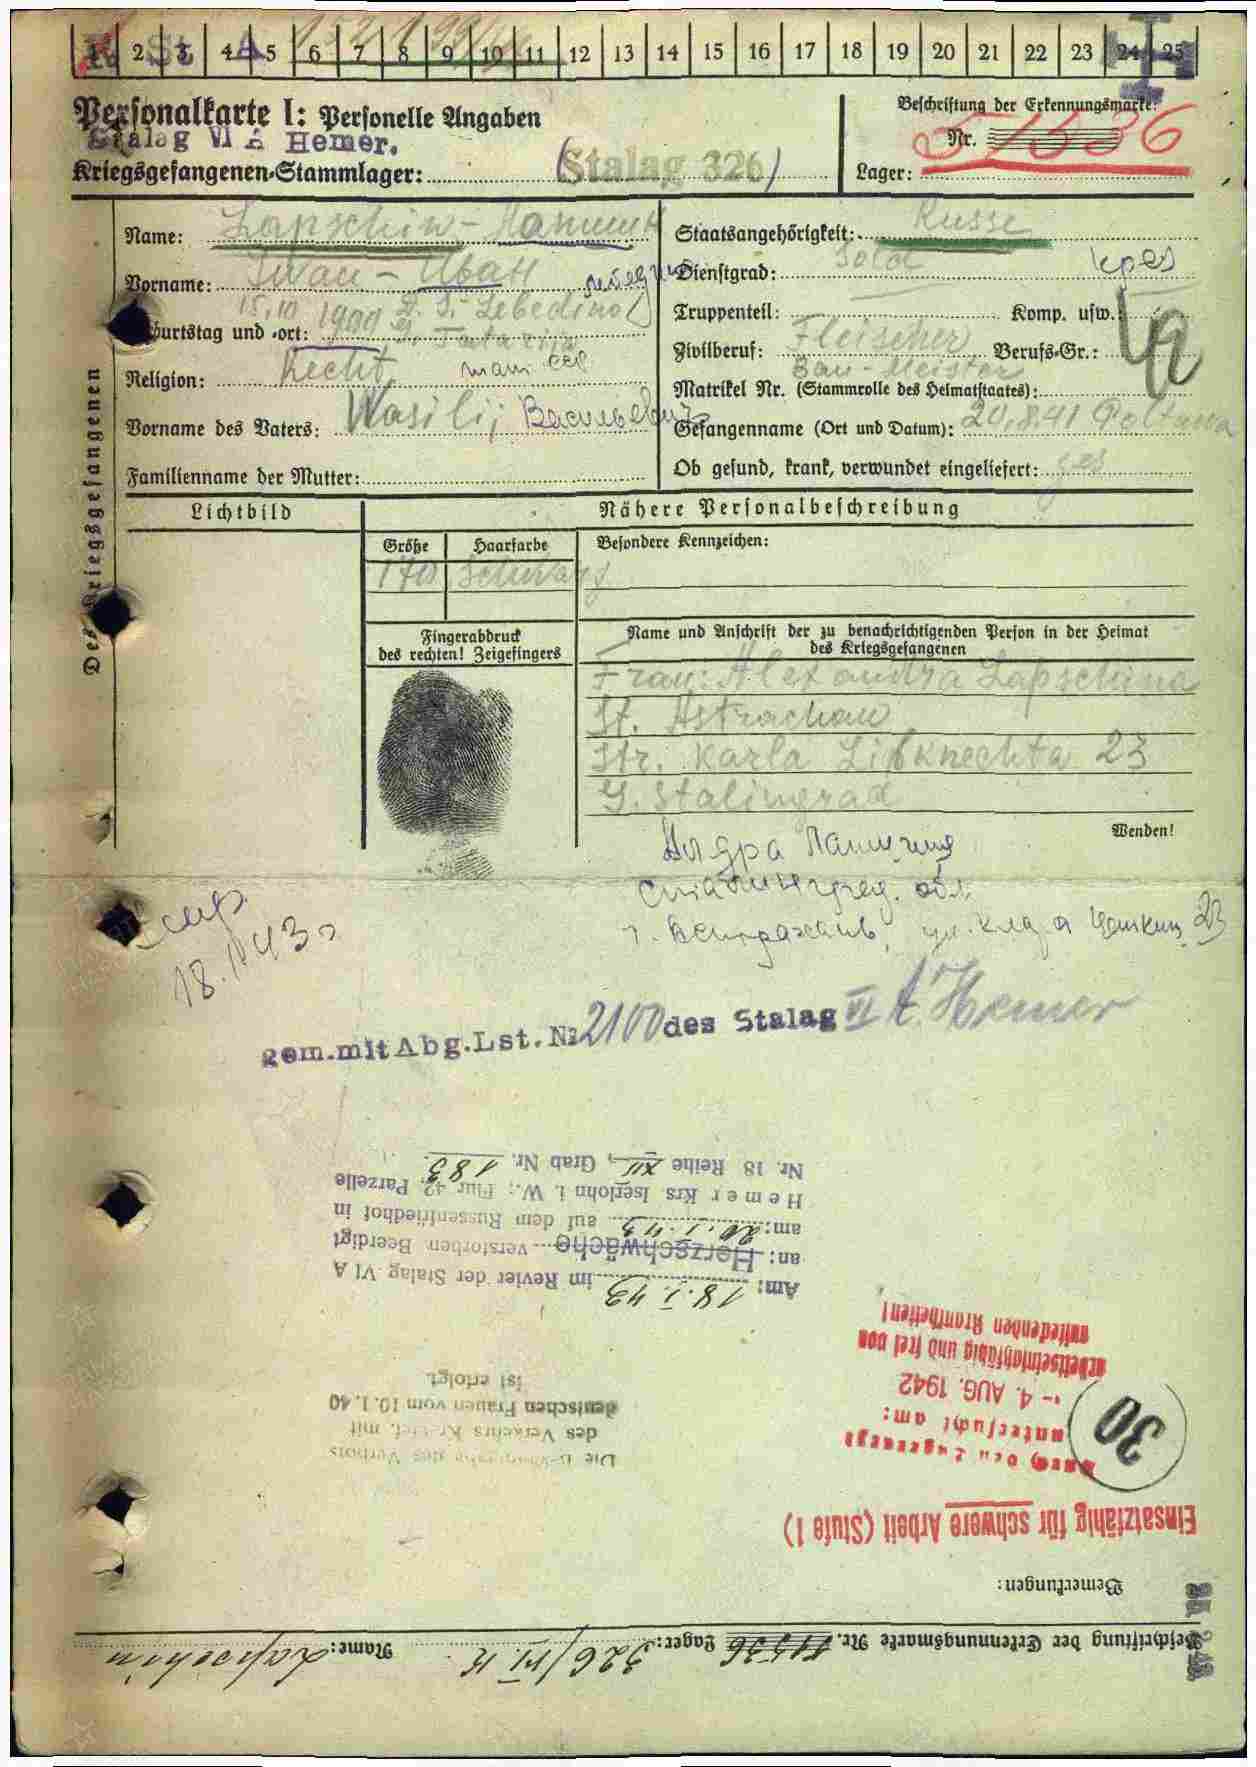 1 2 3 4 5 6 7 8 9 10 11 12 13 14 15 16 17 18 19 20 21 22 23 24 25
Personalkarte I: Personelle Angaben
Stalag VI A Hemer.
Kriegsgefangenen-Stammlager: (Stalag 326)
Beschriftung der Erkennungsmarke:
Nr. 51536
Lager:
Des Kriegsgefangenen
Name: Lapschin -
Vorname: Iwan - Иван
Geburtstag und -ort: 15.10 1909 Lebedino
Religion: Recht.
Vorname des Vaters: Wasilij
Familienname der Mutter:
Staatsangehörigkeit: Russe
Dienstgrad: Sold
Truppenteil: Komp. usw.:
Zivilberuf: Fleischer Berufs-Gr.:
Bau-Meister
Matrikel Nr. (Stammrolle des Heimatstaates):
Gefangenname (Ort und Datum): 20.8.41 Poltawa
Ob gesund, krank, verwundet eingeliefert: ges
Lichtbild
Nähere Personalbeschreibung
Größe Haarfarbe Besondere Kennzeichen:
170 Schwarz
Fingerabdruck
des rechten! Zeigefingers
Name und Anschrift der zu benachrichtigenden Person in der Heimat
des Kriegsgefangenen
Frau: Alexandra Lapschina
St. Astrachan
Str. Karla Libknechta 23
G. Stalingrad
Wenden!
обл.
23
18.1.43
gem. mit Abg. Lst. № 2100 des Stalag VI A Hemer
Nr. 18 Reihe XII, Grab Nr. 183
Hemer Krs. Iserlohn i. W.: Flur 42 Parzelle
am: 20.I.43 auf dem Russenfriedhof in
an: Herzschwäche verstorben. Beerdigt
Am: 18.I.43 im Revier der Stalag VI A
ansteckenden Krankheiten!
arbeitseinsatzfähig und frei von
- 4. AUG. 1942
untersucht am:
30
ist erfolgt.
deutschen Frauen vom 10.1.40
des Verkehrs mit
Die des Verbots
Einsatzfähig für schwere Arbeit (Stufe 1)
Bemerkungen:
Beschriftung der Erkennungsmarke Nr. 51536 Lager: 326/VI K Name: Lapschin